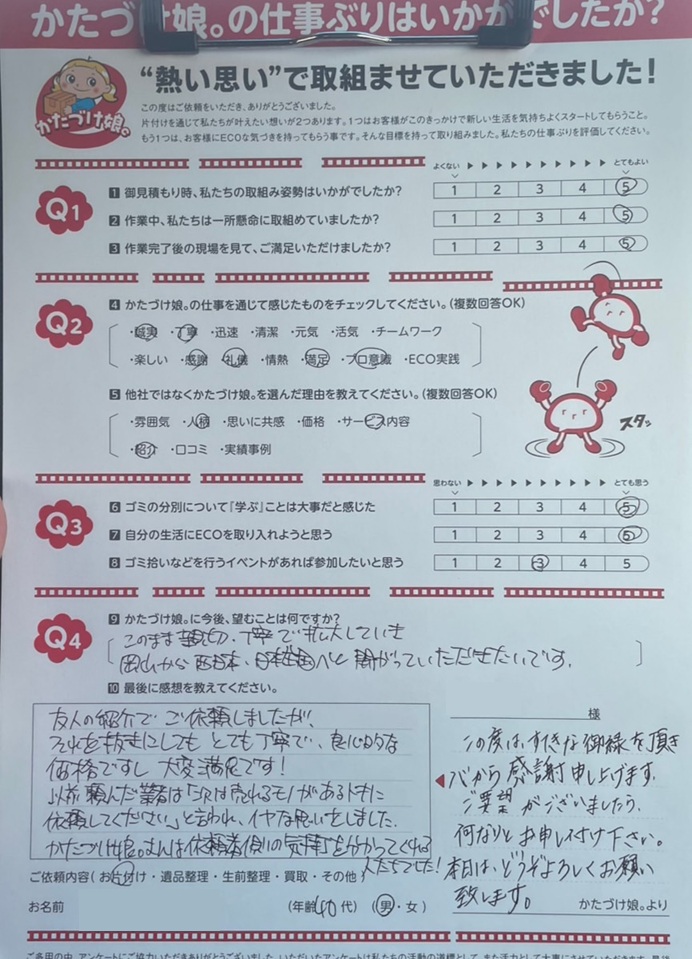 かたづけ娘。の仕事ぶりはいかがでしたか?
かたづけ娘。
“熱い思い”で取組ませていただきました!
この度はご依頼をいただき、ありがとうございました。
片付けを通じて私たちが叶えたい想いが2つあります。1つはお客様がこのきっかけで新しい生活を気持ちよくスタートしてもらうこと。
もう1つは、お客様にECOな気づきを持ってもらう事です。そんな目標を持って取り組みました。私たちの仕事ぶりを評価してください。
よくない ▶ ▶ ▶ ▶ ▶ ▶ ▶ ▶ ▶ ▶ とてもよい
Q1
1 御見積もり時、私たちの取組み姿勢はいかがでしたか? 1 2 3 4 5
2 作業中、私たちは一所懸命に取組めていましたか? 1 2 3 4 5
3 作業完了後の現場を見て、ご満足いただけましたか? 1 2 3 4 5
Q2
4 かたづけ娘。の仕事を通じて感じたものをチェックしてください。(複数回答OK)
・誠実 ・丁寧 ・迅速 ・清潔 ・元気 ・活気 ・チームワーク
・楽しい ・感謝 ・礼儀 ・情熱 ・満足 ・プロ意識 ・ECO実践
5 他社ではなくかたづけ娘。を選んだ理由を教えてください。(複数回答OK)
・雰囲気 ・人積 ・思いに共感 ・価格 ・サービス内容
・紹介 ・口コミ ・実績事例
スタッ
思わない ▶ ▶ ▶ ▶ ▶ ▶ ▶ ▶ ▶ ▶ とても思う
Q3
6 ゴミの分別について『学ぶ』ことは大事だと感じた 1 2 3 4 5
7 自分の生活にECOを取り入れようと思う 1 2 3 4 5
8 ゴミ拾いなどを行うイベントがあれば参加したいと思う 1 2 3 4 5
Q4
9 かたづけ娘。に今後、望むことは何ですか?
このまま親切・丁寧で拡大していき
岡山から西日本、日本全国へと繋がっていただきたいです。
10 最後に感想を教えてください。
友人の紹介でご依頼しましたが、
それを抜きにしてもとても丁寧で、良心的な
価格ですし大変満足です!
以前頼んだ業者は「次は売れるモノがあるトキに
依頼してください」と言われ、イヤな思いをしました。
かたづけ娘。さんは依頼者側の気持をわかってくれる
人たちでした!
様
この度は、すてきな御縁を頂き
心から感謝申し上げます。
ご要望がございましたら、
何なりとお申し付け下さい。
本日は、どうぞよろしくお願い
致します。
かたづけ娘。より
ご依頼内容(お片付け・遺品整理・生前整理・買取・その他)
お名前 (年齢40代) (男・女)
ご多用の中、アンケートにご協力いただきありがとうございました。いただいたアンケートは私たちの活動の道標として、また活力として大事にさせていただきます。